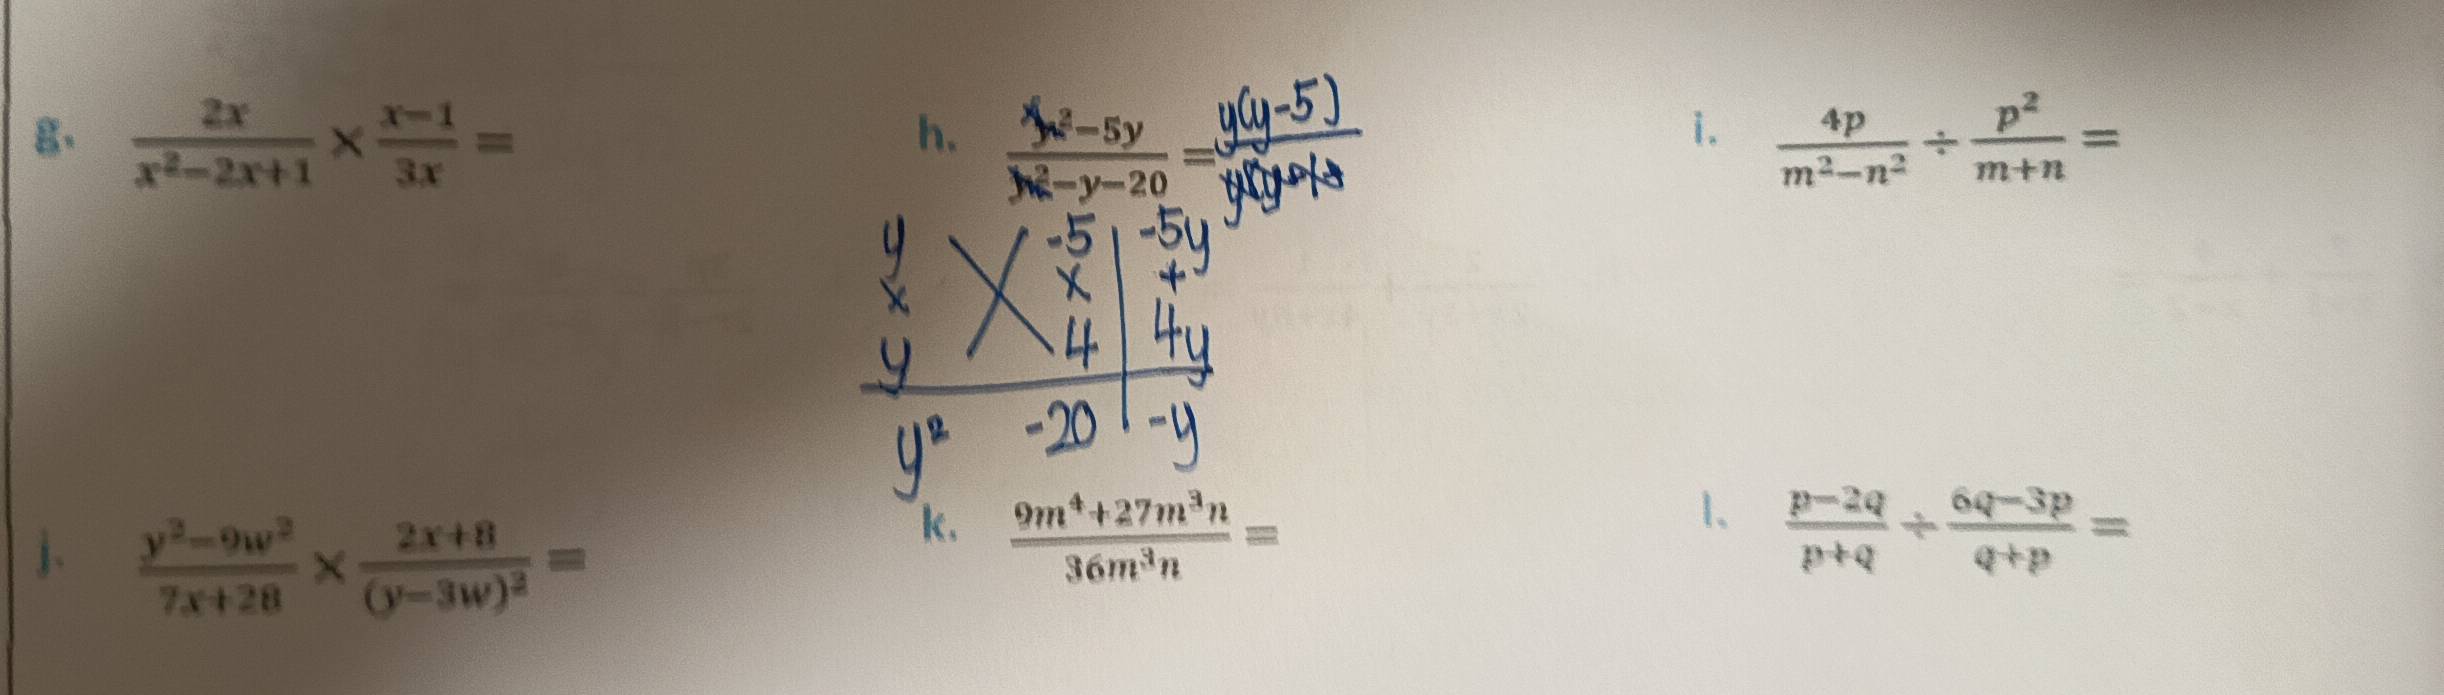 g. \frac{2x}{x^2-2x+1} × \frac{x-1}{3x} =
h. \frac{y^2-5y}{y^2-y-20} = \frac{y(y-5)}{}
i. \frac{4p}{m^2-n^2} ÷ \frac{p^2}{m+n} =
y -5 | -5y
x x | +
y 4 | 4y
y² -20 | -y
j. \frac{y^2-9w^2}{7x+28} × \frac{2x+8}{(y-3w)^2} =
k. \frac{9m^4+27m^3n}{36m^3n} =
l. \frac{p-2q}{p+q} ÷ \frac{6q-3p}{q+p} =